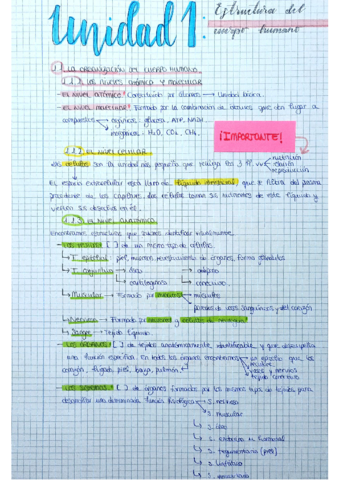 Unidad 1: Estructura del
cuerpo humano
1.1 LA ORGANIZACIÓN DEL CUERPO HUMANO
1.1.1 LOS NIVELES ATÓMICO Y MOLECULAR
- EL NIVEL ATÓMICO: Constituido por átomos → Unidad básica.
- EL NIVEL MOLECULAR: Formado por la combinación de átomos, que da lugar a
compuestos orgánicos: glucosa, ATP, NADH
inorgánicos: H2O, CO2, CH4
¡IMPORTANTE!
1.1.2 EL NIVEL CELULAR
Las células son la unidad más pequeña que realiza las 3 FF. VV. nutrición
relación
reproducción
El espacio extracelular está lleno de líquido intersticial, que se filtra del plasma
procedente de los capilares. Las células toman sus nutrientes de este líquido y
vierten los desechos en él.
1.1.3 EL NIVEL ANATÓMICO
Encontramos estructuras que somos identificar visualmente.
- LOS TEJIDOS: [ ] de un mismo tipo de células.
→ T. epitelial: piel, mucosas, recubrimiento de órganos, forma glándulas
→ T. conjuntivo → óseo → adiposo
→ cartilaginoso → conectivo
→ Muscular → Formado por miocitos → músculos
paredes de vasos sanguíneos y del corazón
→ Nervioso → Formado por neuronas y células de neuroglía
→ Sangre → Tejido líquido
- LOS ÓRGANOS: [ ] de tejidos anatómicamente identificable y que desempeña
una función específica. En todos los órganos encontramos un epitelio que los
recubre
corazón, hígado, piel, bazo, pulmón vasos y nervios
tejido conectivo
- LOS SISTEMAS: [ ] de órganos formados por los mismos tipos de tejidos para
desarrollar una determinada función fisiológica → S. nervioso
→ S. muscular
→ S. óseo
→ S. endocrino o hormonal
→ S. tegumentario (piel)
→ S. linfático
→ S.